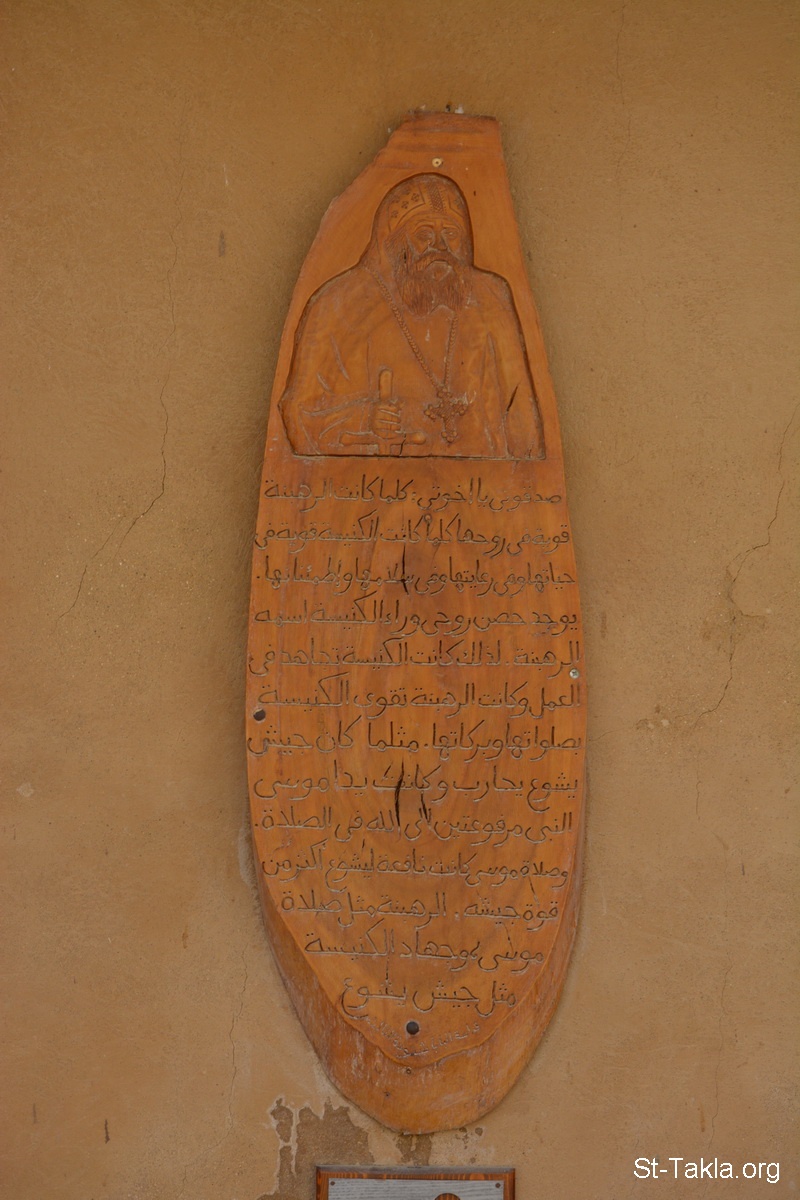 صدقوني يا إخوتي: كلما كانت الرهبنة
قوية في روحها كلما كانت الكنيسة قوية في
حياتها وفي رعايتها وفي سلامها وإطمئنانها.
يوجد حصن روحي وراء الكنيسة اسمه
الرهبنة. لذلك كانت الكنيسة تجاهد في
العمل وكانت الرهبنة تقوى الكنيسة
بصلواتها وبركاتها. مثلما كان جيش
يشوع يحارب وكانت يدا موسى
النبي مرفوعتين إلى الله في الصلاة.
وصلاة موسى كانت نافعة ليشوع أكثر من
قوة جيشه. الرهبنة مثل صلاة
موسى، وجهاد الكنيسة
مثل جيش يشوع
St-Takla.org